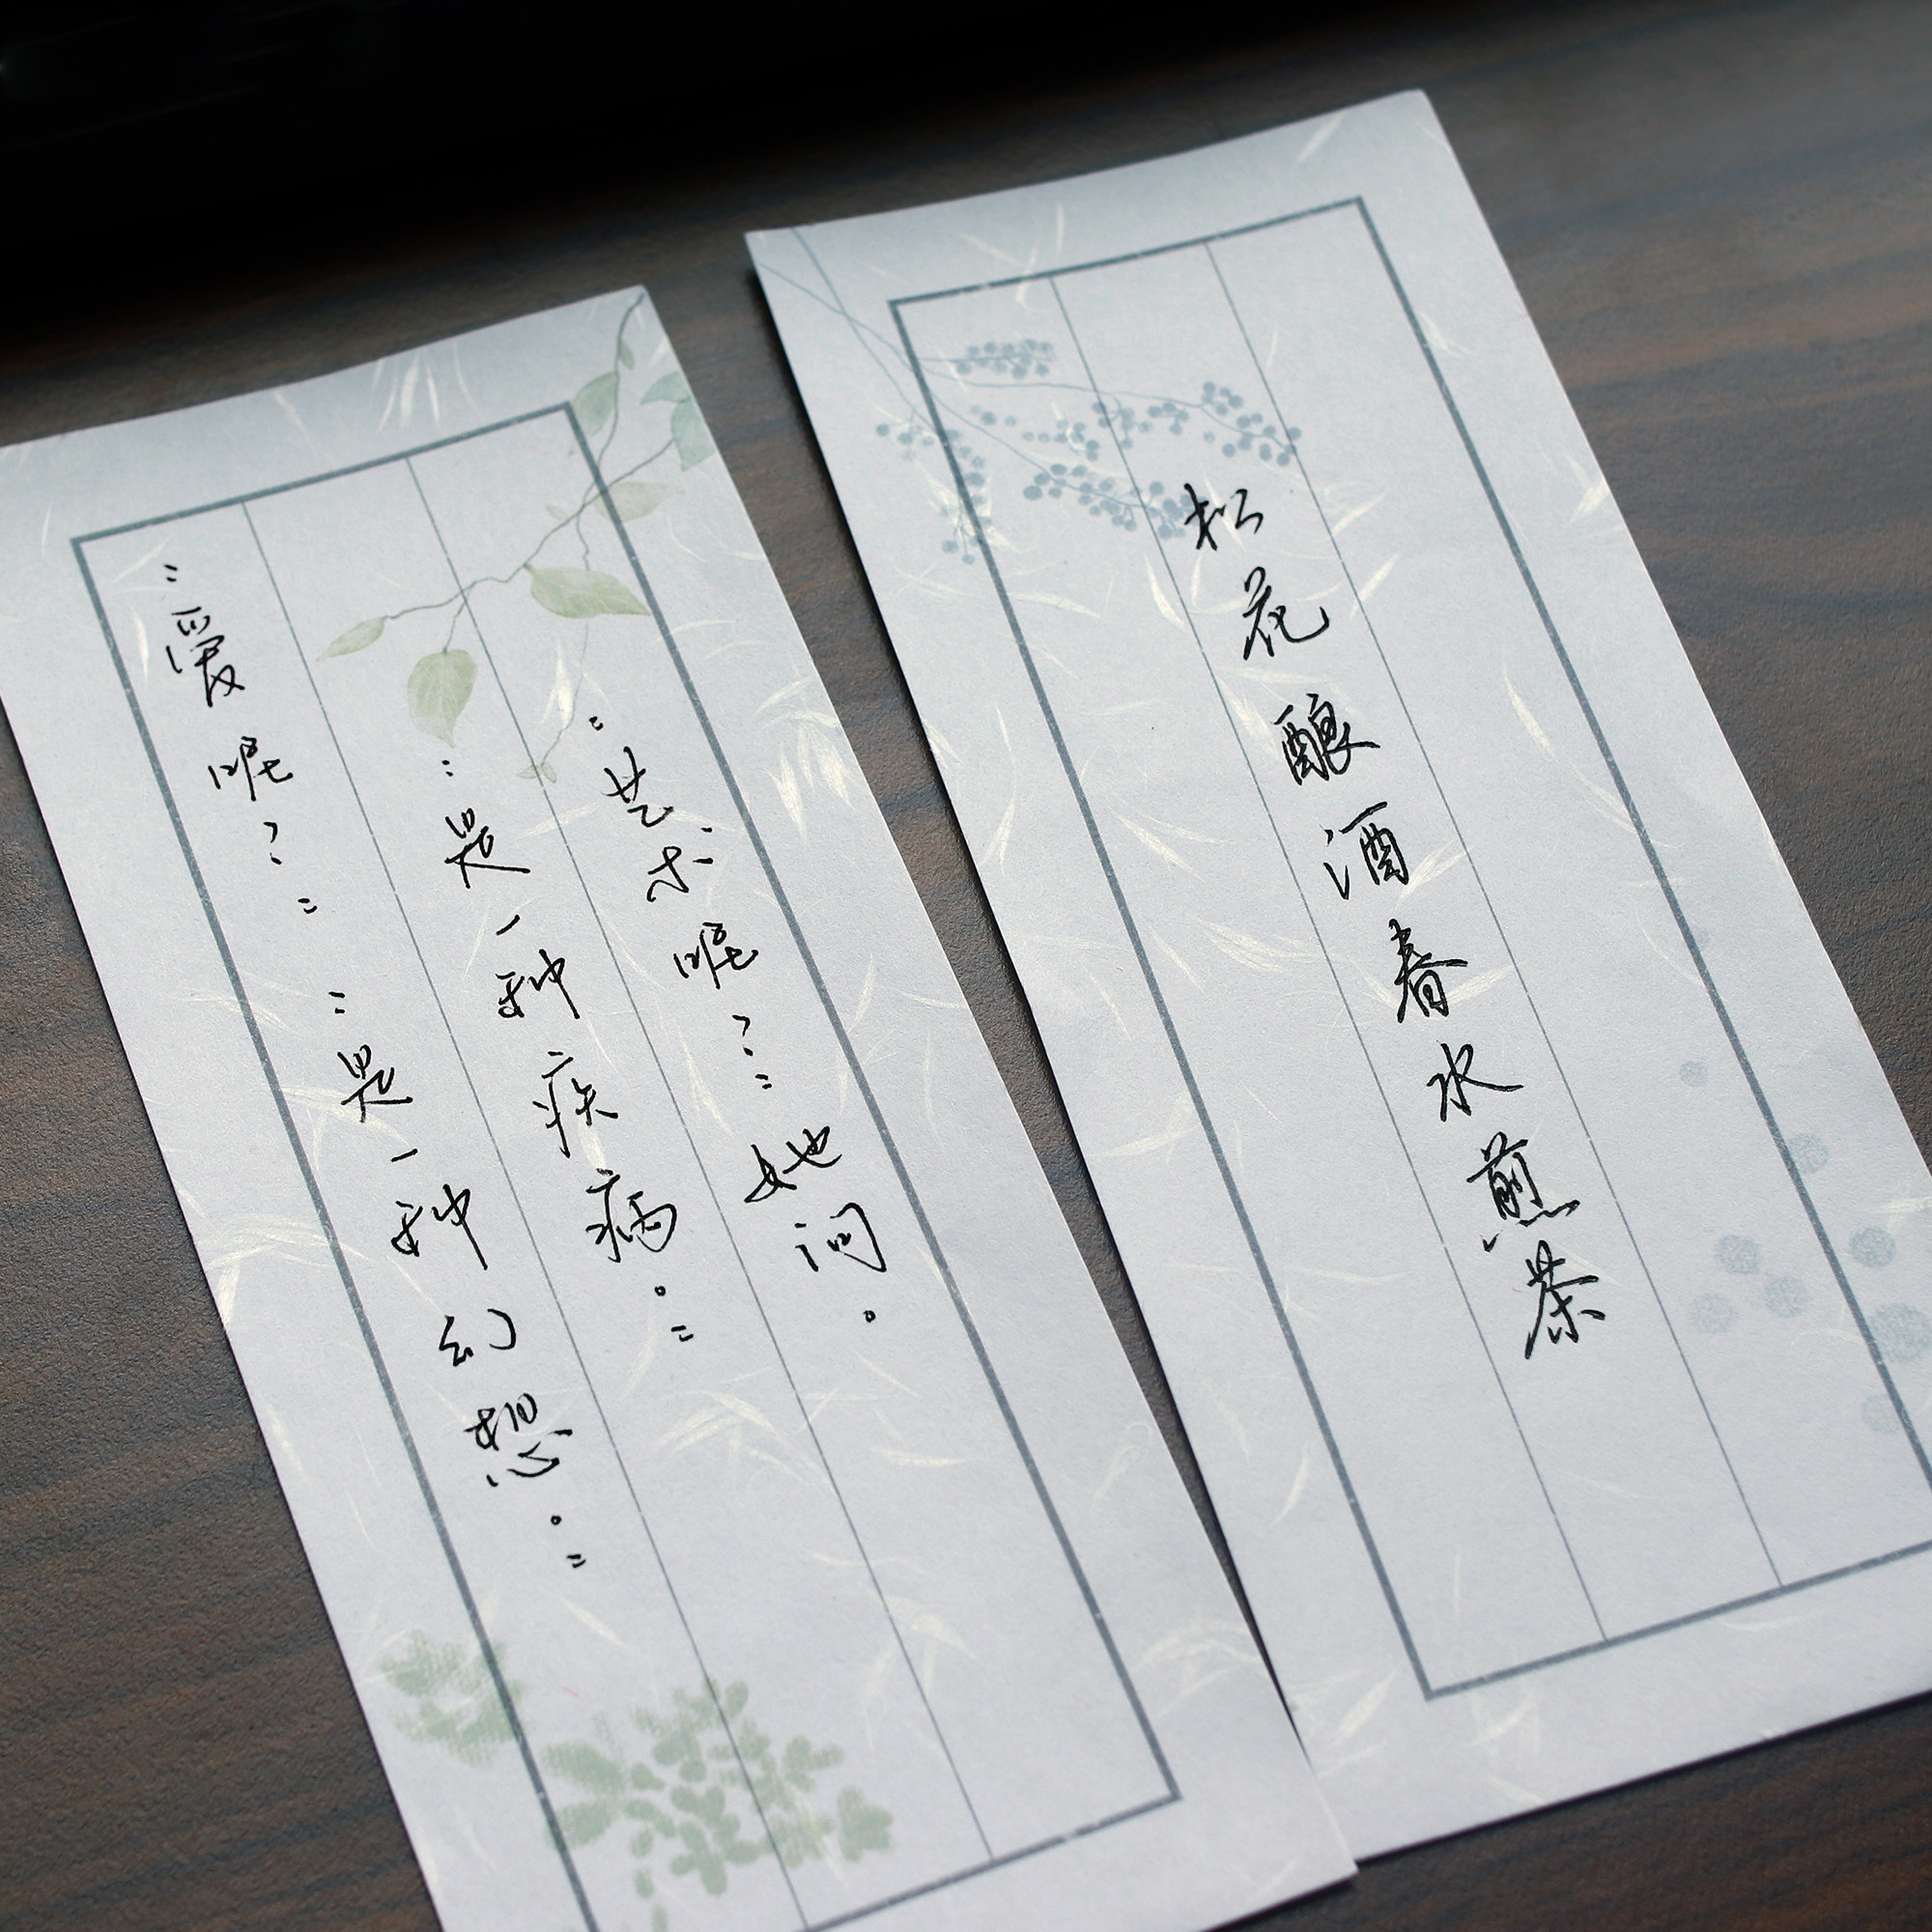 松花酿酒春水煎茶
“艺术呢？”她问。
“是一种疾病。”
“爱呢？”“是一种幻想。”